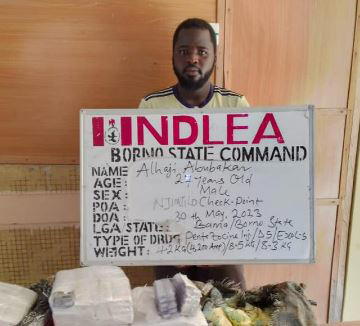 NDLEA
BORNO STATE COMMAND
NAME Alhaji Abubakar
AGE: 27 Years Old
SEX: Male
POA: Check-Point
DOA: 30th May, 2023
LGA STATE: Bama/Borno State
TYPE OF DRUG Pentazocine Inj/D5/Exol-5
WEIGHT: